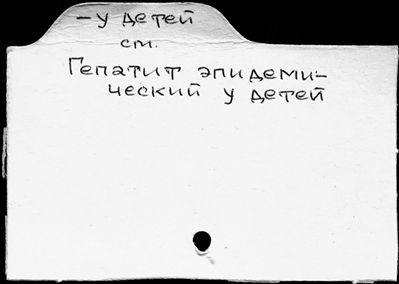 - у детей
см.
Гепатит эпидеми-
ческий у детей